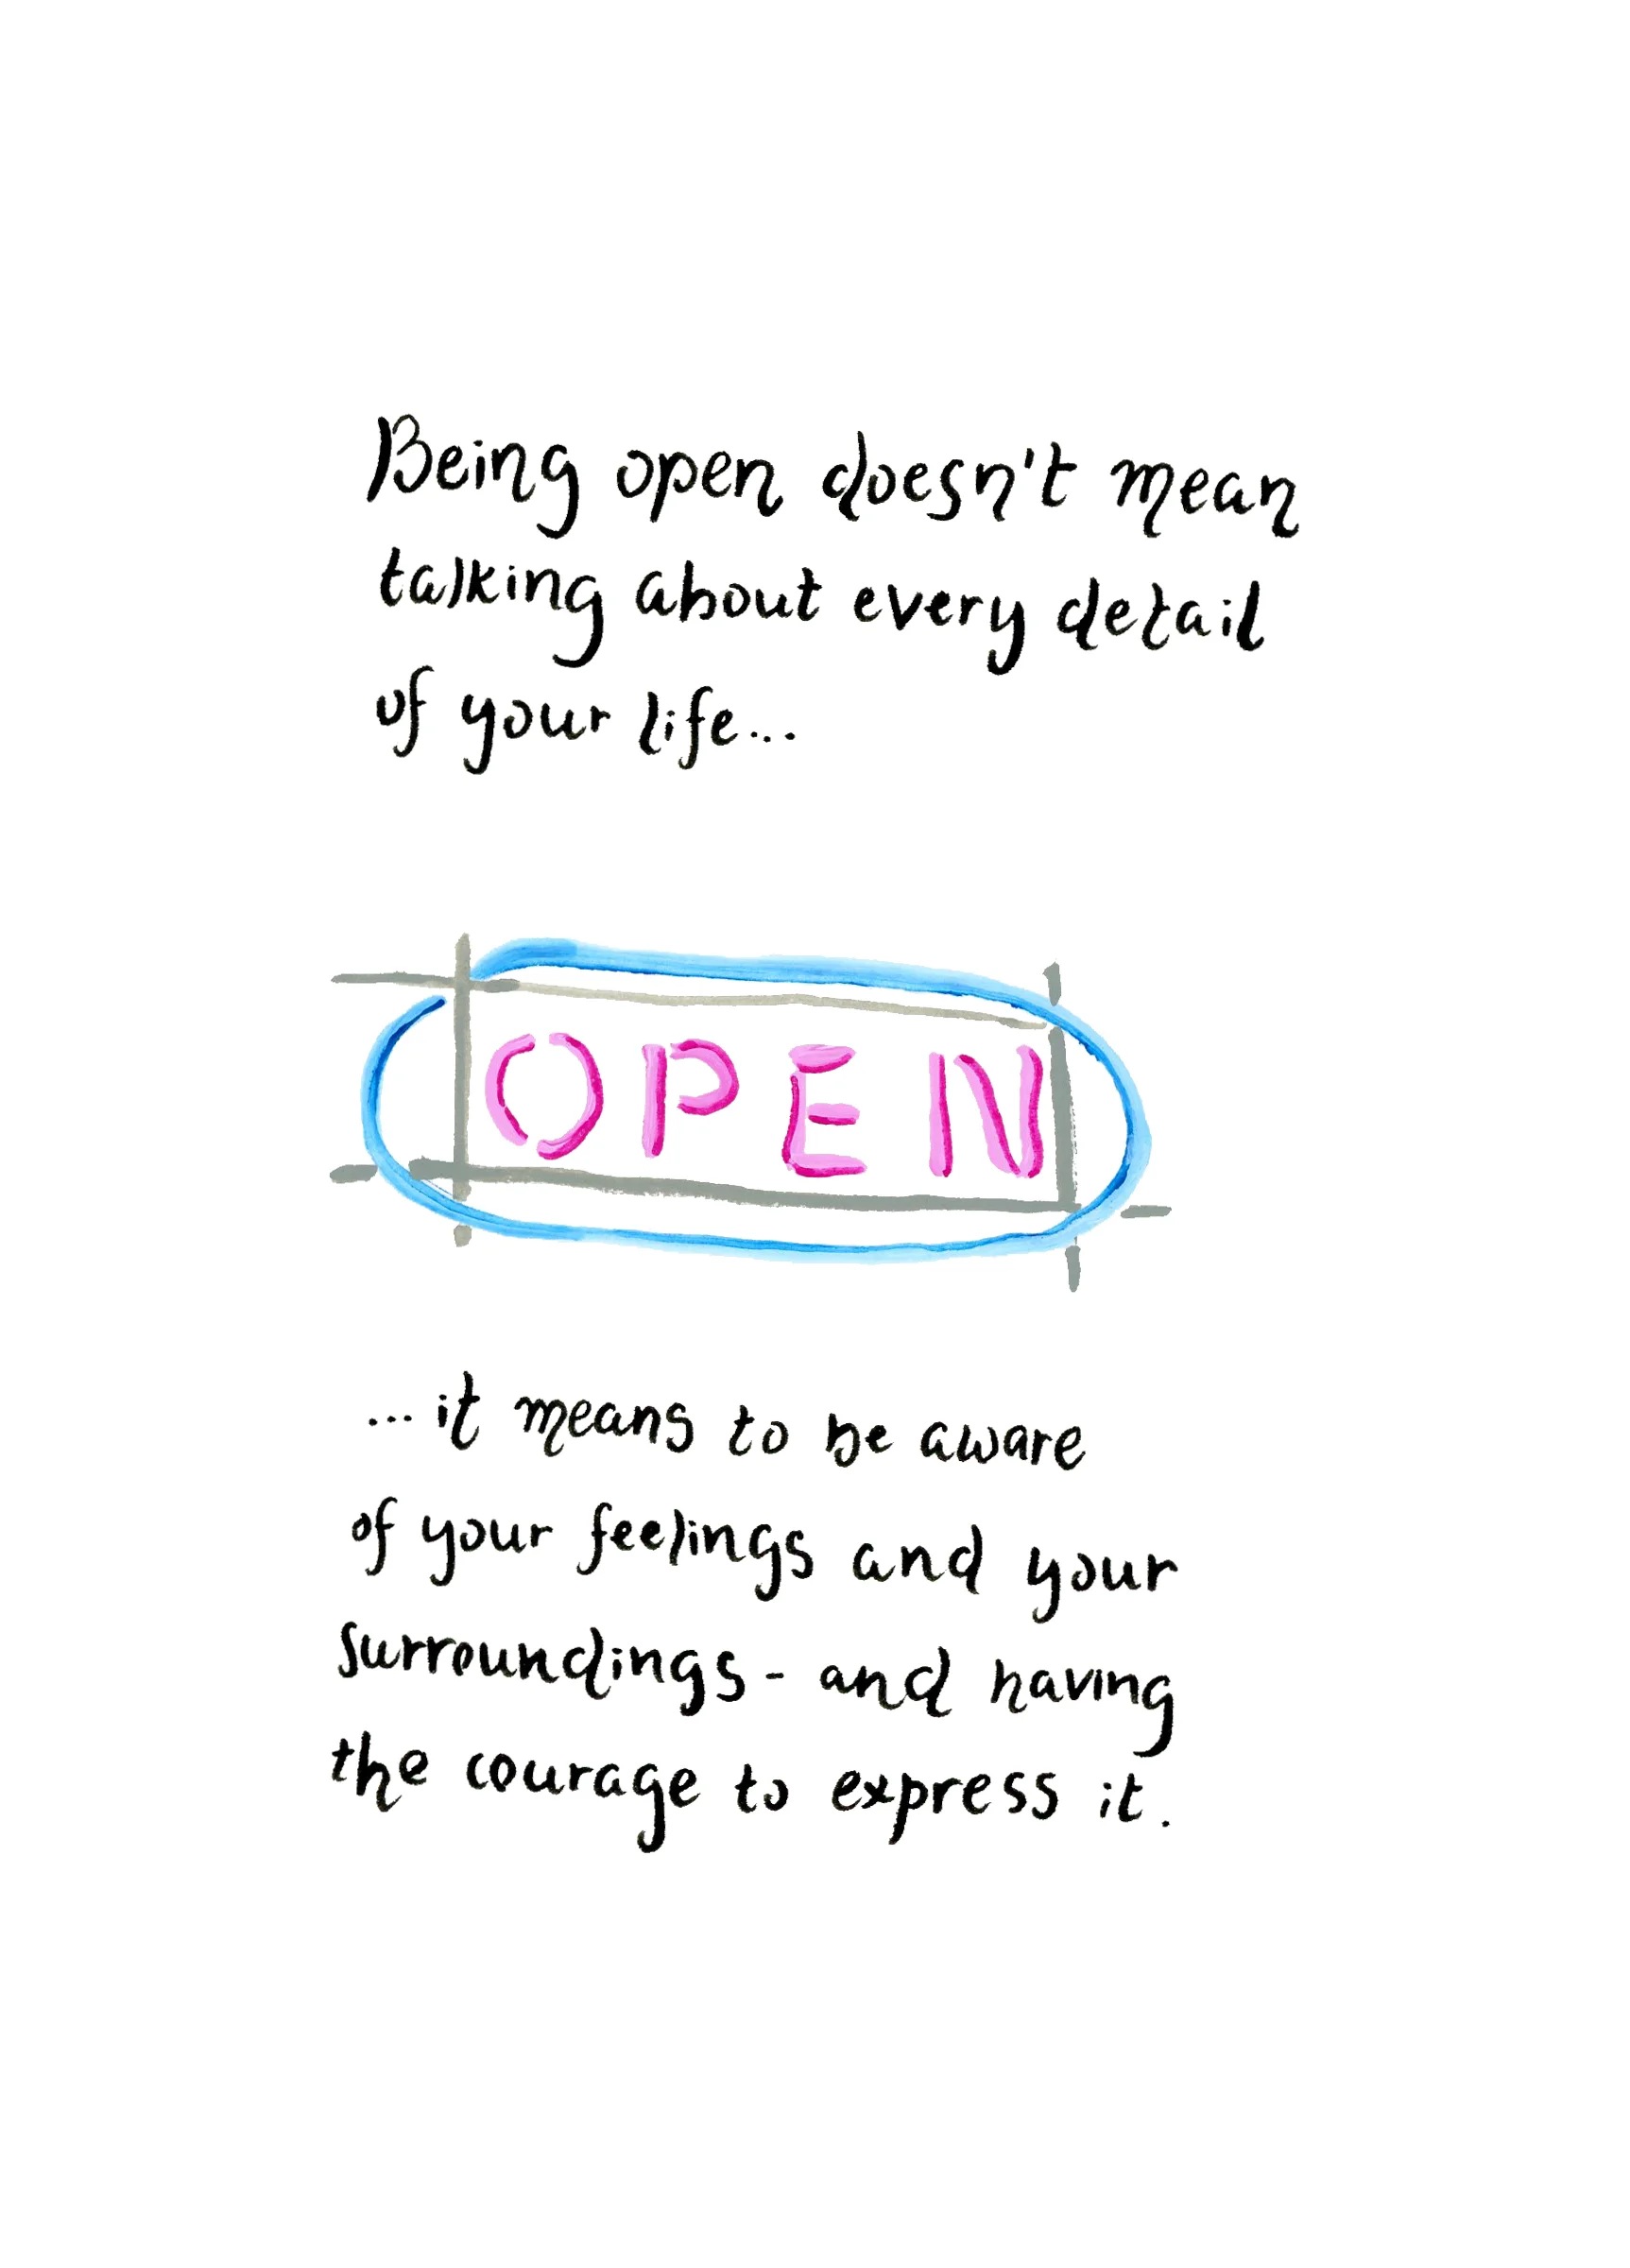 Being open doesn't mean
talking about every detail
of your life...
OPEN
... it means to be aware
of your feelings and your
surroundings - and having
the courage to express it.